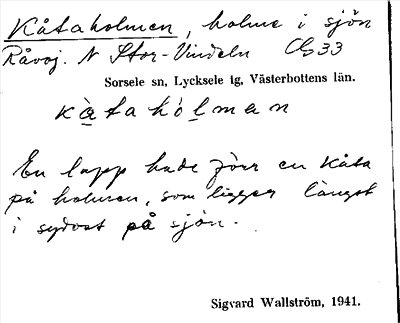 Kåtaholmen, holme i sjön
Råvoj. N Stor-Vindeln Cb33
Sorsele sn, Lycksele lg, Västerbottens län.
kàtahólman
En lapp hade förr en kåta
på holmen, som ligger längst
i sydost på sjön.
Sigvard Wallström, 1941.